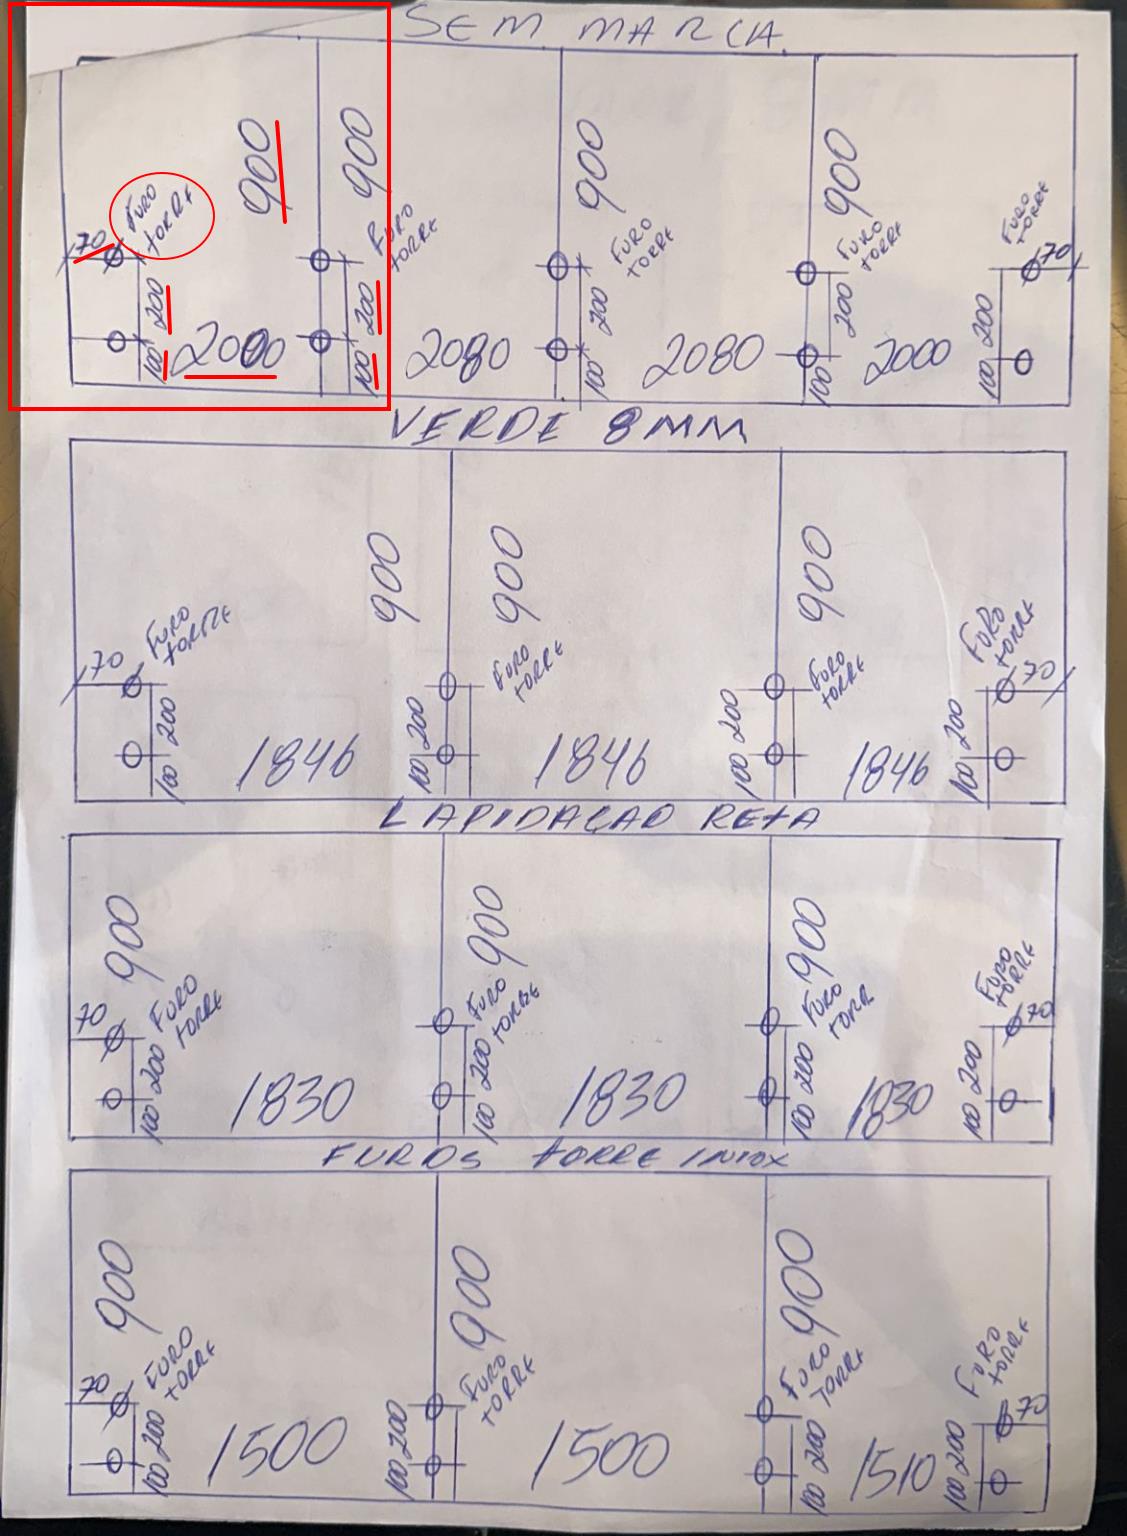 SEM MARCA.
900
900
900
900
70
FURO
TORRE
FURO
TORRE
FURO
TORRE
FURO
TORRE
FURO
TORRE
70
200
200
200
200
200
100
2000
100
2080
100
2080
100
2000
100
VERDE 8MM
900
900
900
70
FURO
TORRE
FURO
TORRE
FURO
TORRE
FURO
TORRE
70
200
200
200
200
100
1846
100
1846
100
1846
100
LAPIDAÇAO RETA
900
900
900
70
FURO
TORRE
FURO
TORRE
FURO
TORR
FURO
TORRE
70
200
200
200
200
100
1830
100
1830
100
1830
100
FUROS TORRE INIOX
900
900
900
70
FURO
TORRE
FURO
TORRE
FURO
TORRE
FURO
TORRE
70
200
200
200
200
100
1500
100
1500
100
1510
100